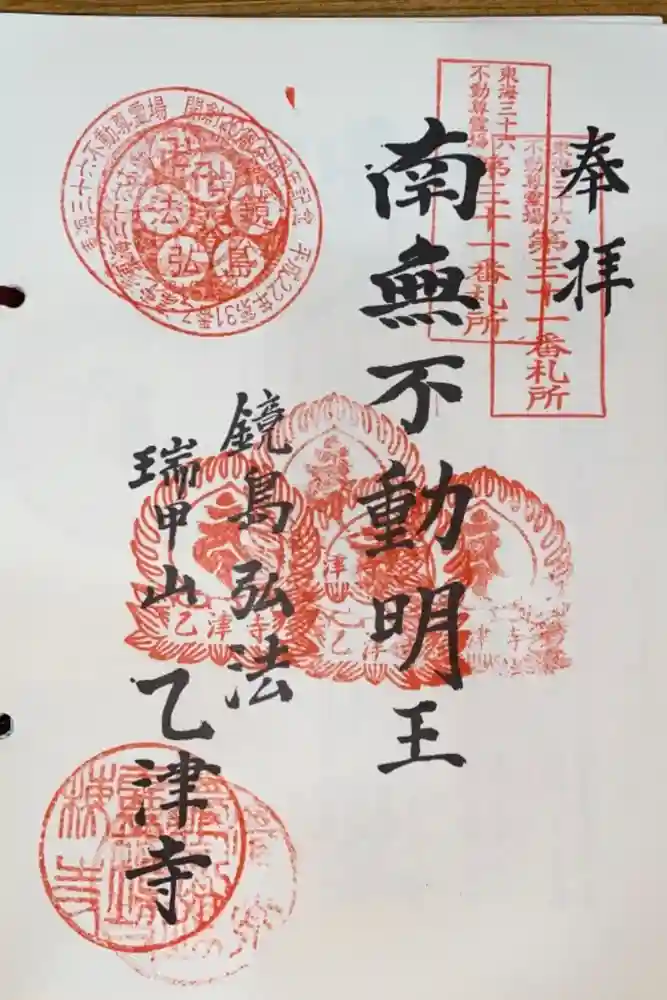 奉拝
東海三十六
不動尊霊場
第三十一番札所
東海三十六
不動尊霊場
第三十一番札所
南無不動明王
鏡島弘法
瑞甲山
乙津寺
東海三十六不動尊霊場
平成22年
鏡島弘法
乙津寺
乙津
津寺